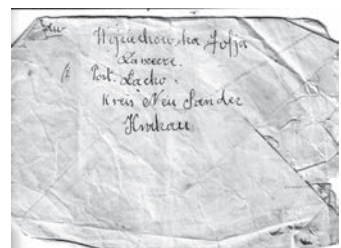 Wojciechowska Zofja
Zaweere.
Post. Łącko.
Kreis Neu Sandez
Krakau